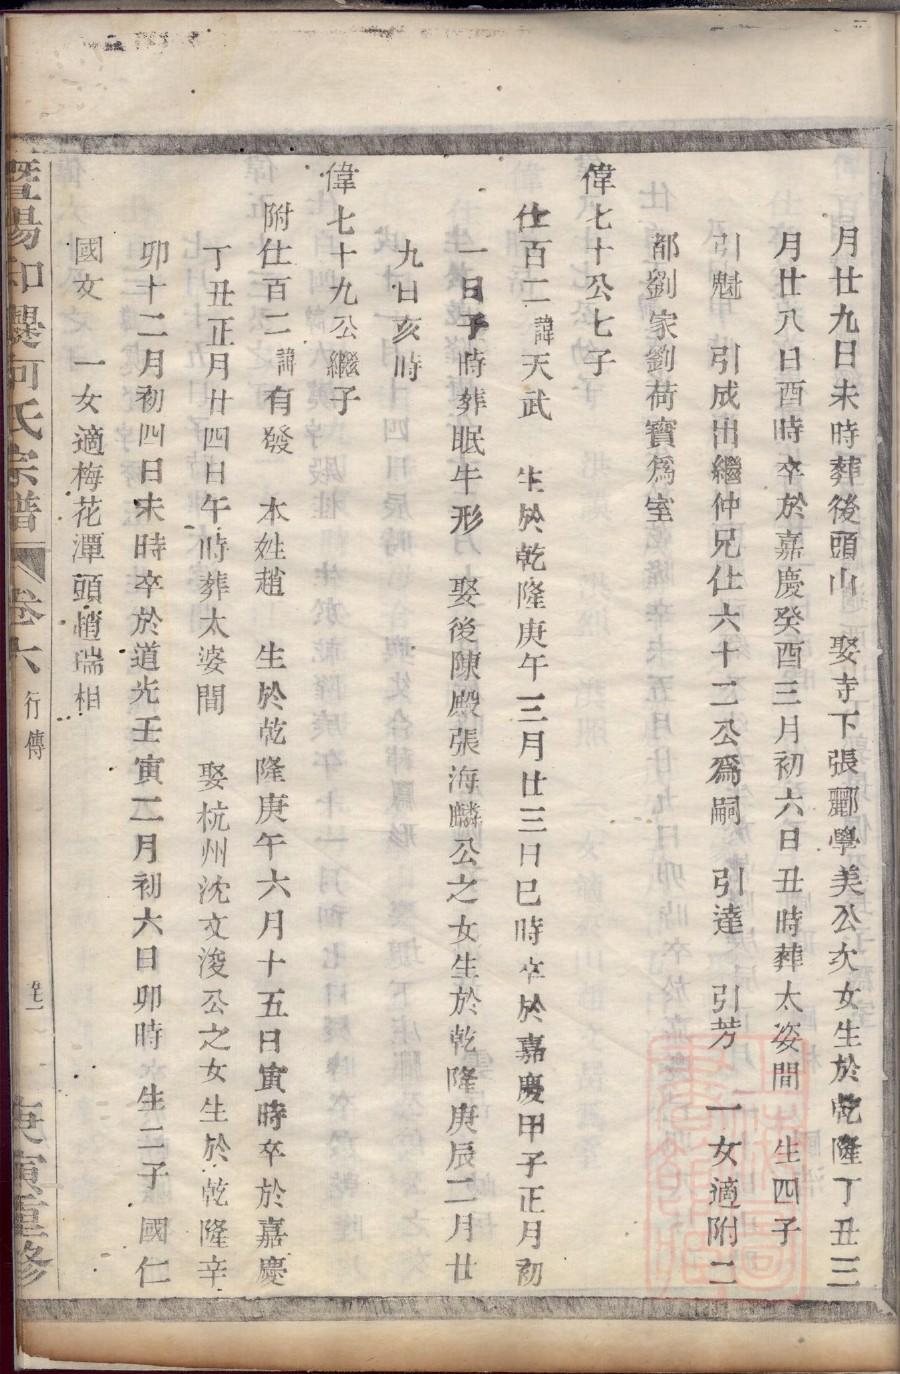 月廿九日未時葬後頭山 娶寺下張酈學美公次女生於乾隆丁丑三
月廿八日酉時卒於嘉慶癸酉三月初六日丑時葬太婆間 生四子
引魁 引成出繼仲兄仕六十二公爲嗣 引達 引芳 一女適附二
都劉家劉荷寶爲室
偉七十公七子
仕百二諱天武 生於乾隆庚午三月廿三日巳時卒於嘉慶甲子正月初
一日子時葬眠牛形 娶後陳殿張海麟公之女生於乾隆庚辰二月廿
九日亥時
偉七十九公繼子
附仕百二諱有發 本姓趙 生於乾隆庚午六月十五日寅時卒於嘉慶
丁丑正月廿四日午時葬太婆間 娶杭州沈文浚公之女生於乾隆辛
卯十二月初四日未時卒於道光壬寅二月初六日卯時 生二子 國仁
國文 一女適梅花潭頭趙瑞相
暨陽和濮何氏宗譜 卷六 行傳 寅重修